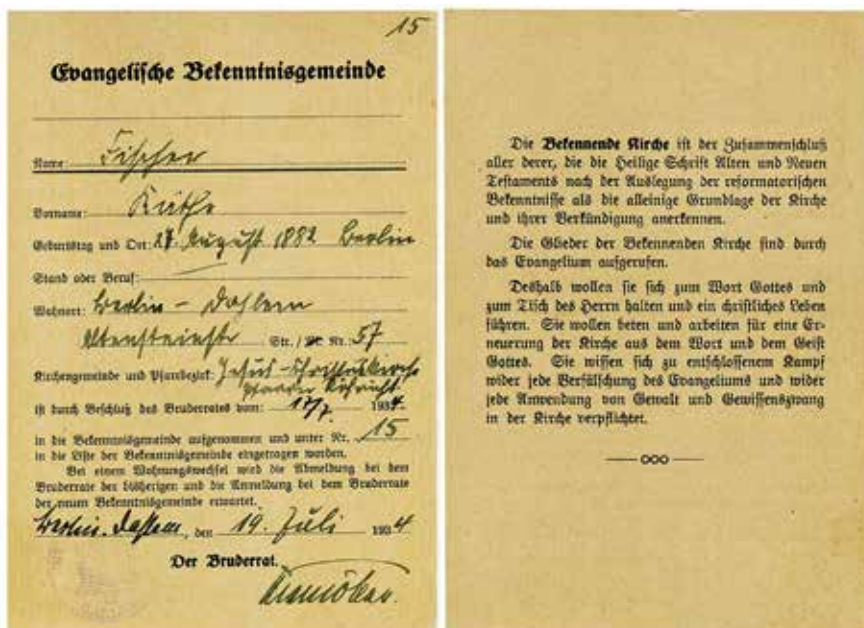 15
Evangelische Bekenntnisgemeinde
Name: Fischer
Vorname: Käthe
Geburtstag und Ort: 27. August 1882 Berlin
Stand oder Beruf:
Wohnort: Berlin - Dahlem
Altensteinstr Str. / Nr. 57
Kirchengemeinde und Pfarrbezirk: Jesus-Christuskirche
Pfarrer Röhricht
ist durch Beschluß des Bruderrates vom: 17/7. 1934.
in die Bekenntnisgemeinde aufgenommen und unter Nr. 15
in die Liste der Bekenntnisgemeinde eingetragen worden.
Bei einem Wohnungswechsel wird die Abmeldung bei dem
Bruderrate der bisherigen und die Anmeldung bei dem Bruderrate
der neuen Bekenntnisgemeinde erwartet.
Berlin-Dahlem, den 19. Juli 1934
Der Bruderrat.
Die Bekennende Kirche ist der Zusammenschluß
aller derer, die die Heilige Schrift Alten und Neuen
Testaments nach der Auslegung der reformatorischen
Bekenntnisse als die alleinige Grundlage der Kirche
und ihrer Verkündigung anerkennen.
Die Glieder der Bekennenden Kirche sind durch
das Evangelium aufgerufen.
Deshalb wollen sie sich zum Wort Gottes und
zum Tisch des Herrn halten und ein christliches Leben
führen. Sie wollen beten und arbeiten für eine Er-
neuerung der Kirche aus dem Wort und dem Geist
Gottes. Sie wissen sich zu entschlossenem Kampf
wider jede Verfälschung des Evangeliums und wider
jede Anwendung von Gewalt und Gewissenszwang
in der Kirche verpflichtet.